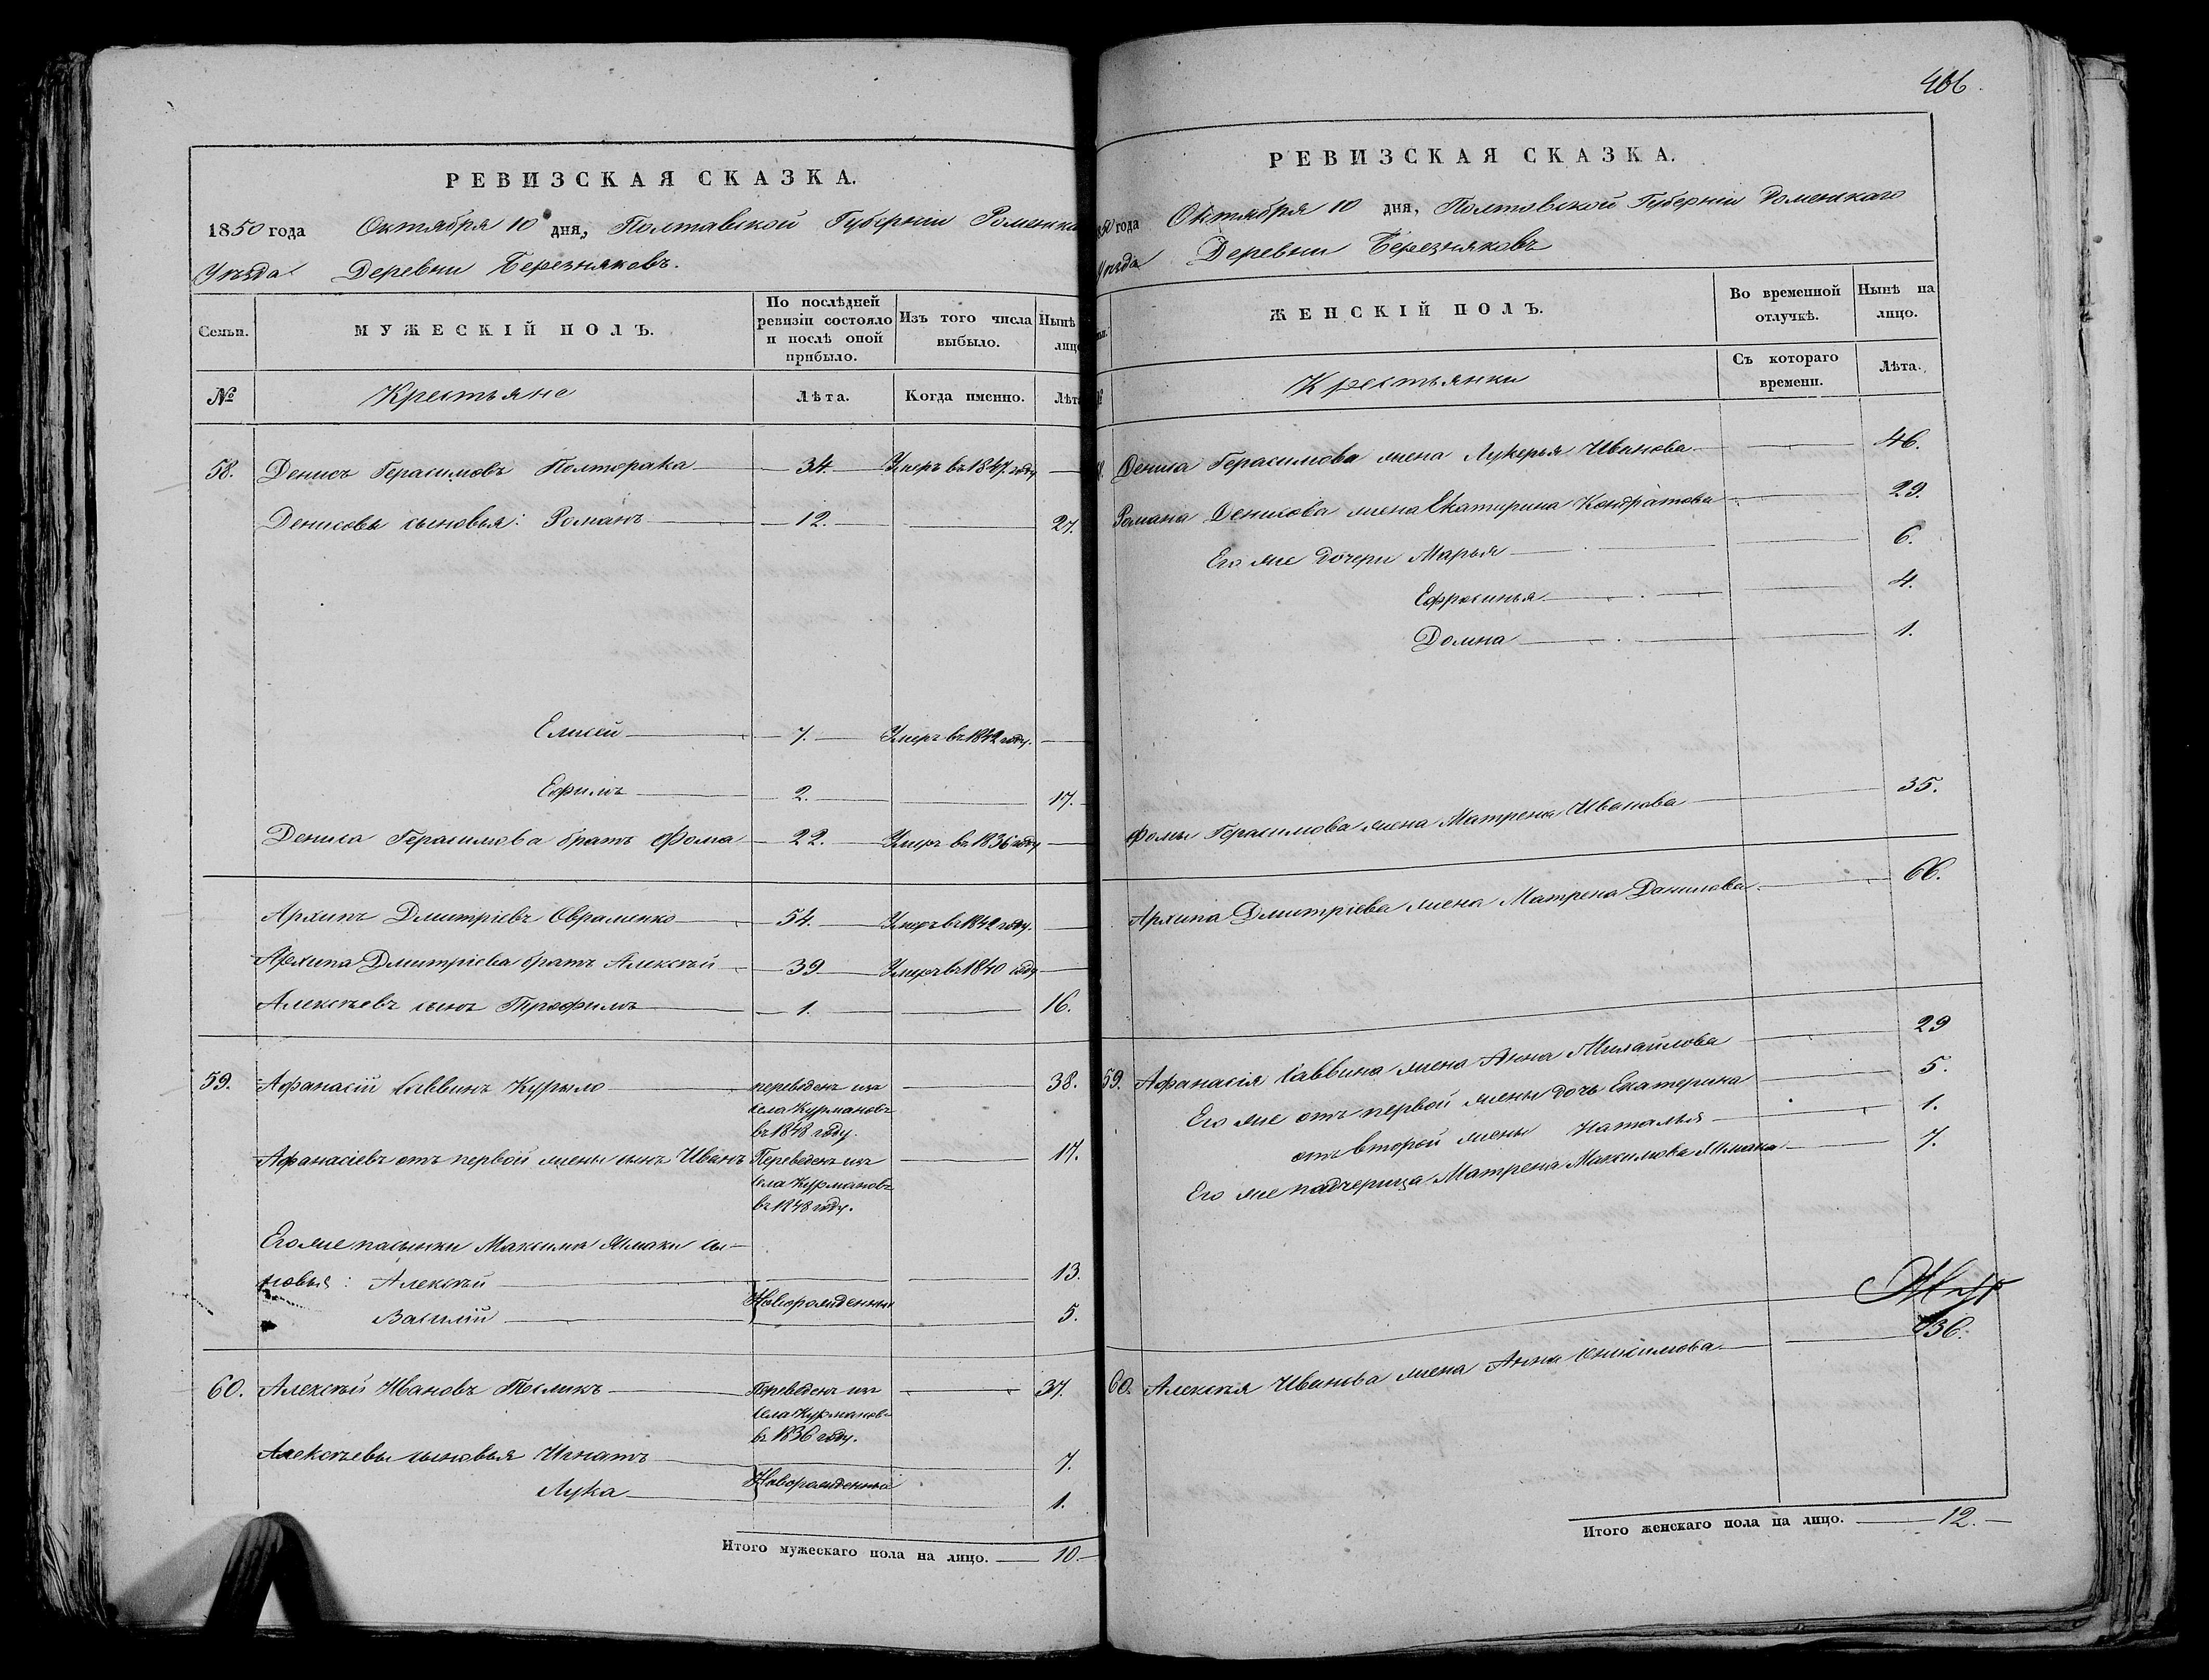 РЕВИЗСКАЯ СКАЗКА.
1850 года Октября 10 дня, Полтавской Губерніи Роменска
Уѣзда Деревни Березняковъ.
Семьи. МУЖЕСКІЙ ПОЛЪ. По послѣдней ревизіи состояло и послѣ оной прибыло. Изъ того числа выбыло. Нынѣ лицо
№ Крестьяне Лѣта. Когда именно. Лѣта
58. Денисъ Герасимовъ Полторака 34 Умеръ въ 1847. году
Денисовы сыновья: Романъ 12. 27.
Елисей 7. Умеръ въ 1842 году.
Ефимъ 2. 17.
Дениса Герасимова братъ Фома 22. Умеръ въ 1836 году
Архипъ Дмитріевъ Овраменко 54. Умеръ въ 1842 году.
Архипа Дмитріева братъ Алексѣй 39 Умеръ въ 1840 году
Алексѣевъ сынъ Трофимъ 1. 16.
59. Афанасій Саввинъ Курыло переведенъ изъ 38.
села Курмановъ
въ 1848 году.
Афанасіевъ отъ первой жены сынъ Иванъ Переведенъ изъ 17.
села Курмановъ
въ 1848 году.
Его же пасынки Максима Ямаки сы-
новья: Алексѣй 13.
Новорожденны
Василій 5.
60. Алексѣй Ивановъ Тесликъ Переведенъ изъ 37.
села Курмановъ
въ 1836 году.
Алексѣевы сыновья Игнатъ 7.
Новорожденны
Лука 1.
Итого мужескаго пола на лицо. 10.
466.
РЕВИЗСКАЯ СКАЗКА.
850 года Октября 10 дня, Полтавской Губерніи Роменскаго
Уѣзда Деревни Березняковъ
ЖЕНСКІЙ ПОЛЪ. Во временной отлучкѣ. Нынѣ на лицо.
Крестьянки Съ котораго времени. Лѣта.
Дениса Герасимова жена Лукерья Иванова 46.
Романа Денисова жена Екатирина Кондратова 29.
Его же дочери Марья 6.
Ефросинья 4.
Домна 1.
Фомы Герасимова жена Матрена Иванова 35.
Архипа Дмитріева жена Матрена Данилова 66.
59. Афанасія Саввина жена Анна Михайлова 29
Его же отъ первой жены дочь Екатерина 5.
отъ второй жены Наталья 1.
Его же падчерица Матрена Максимова Ямака 7.
60. Алексѣя Иванова жена Анна Онисимова 36.
Итого женскаго пола на лицо. 12.